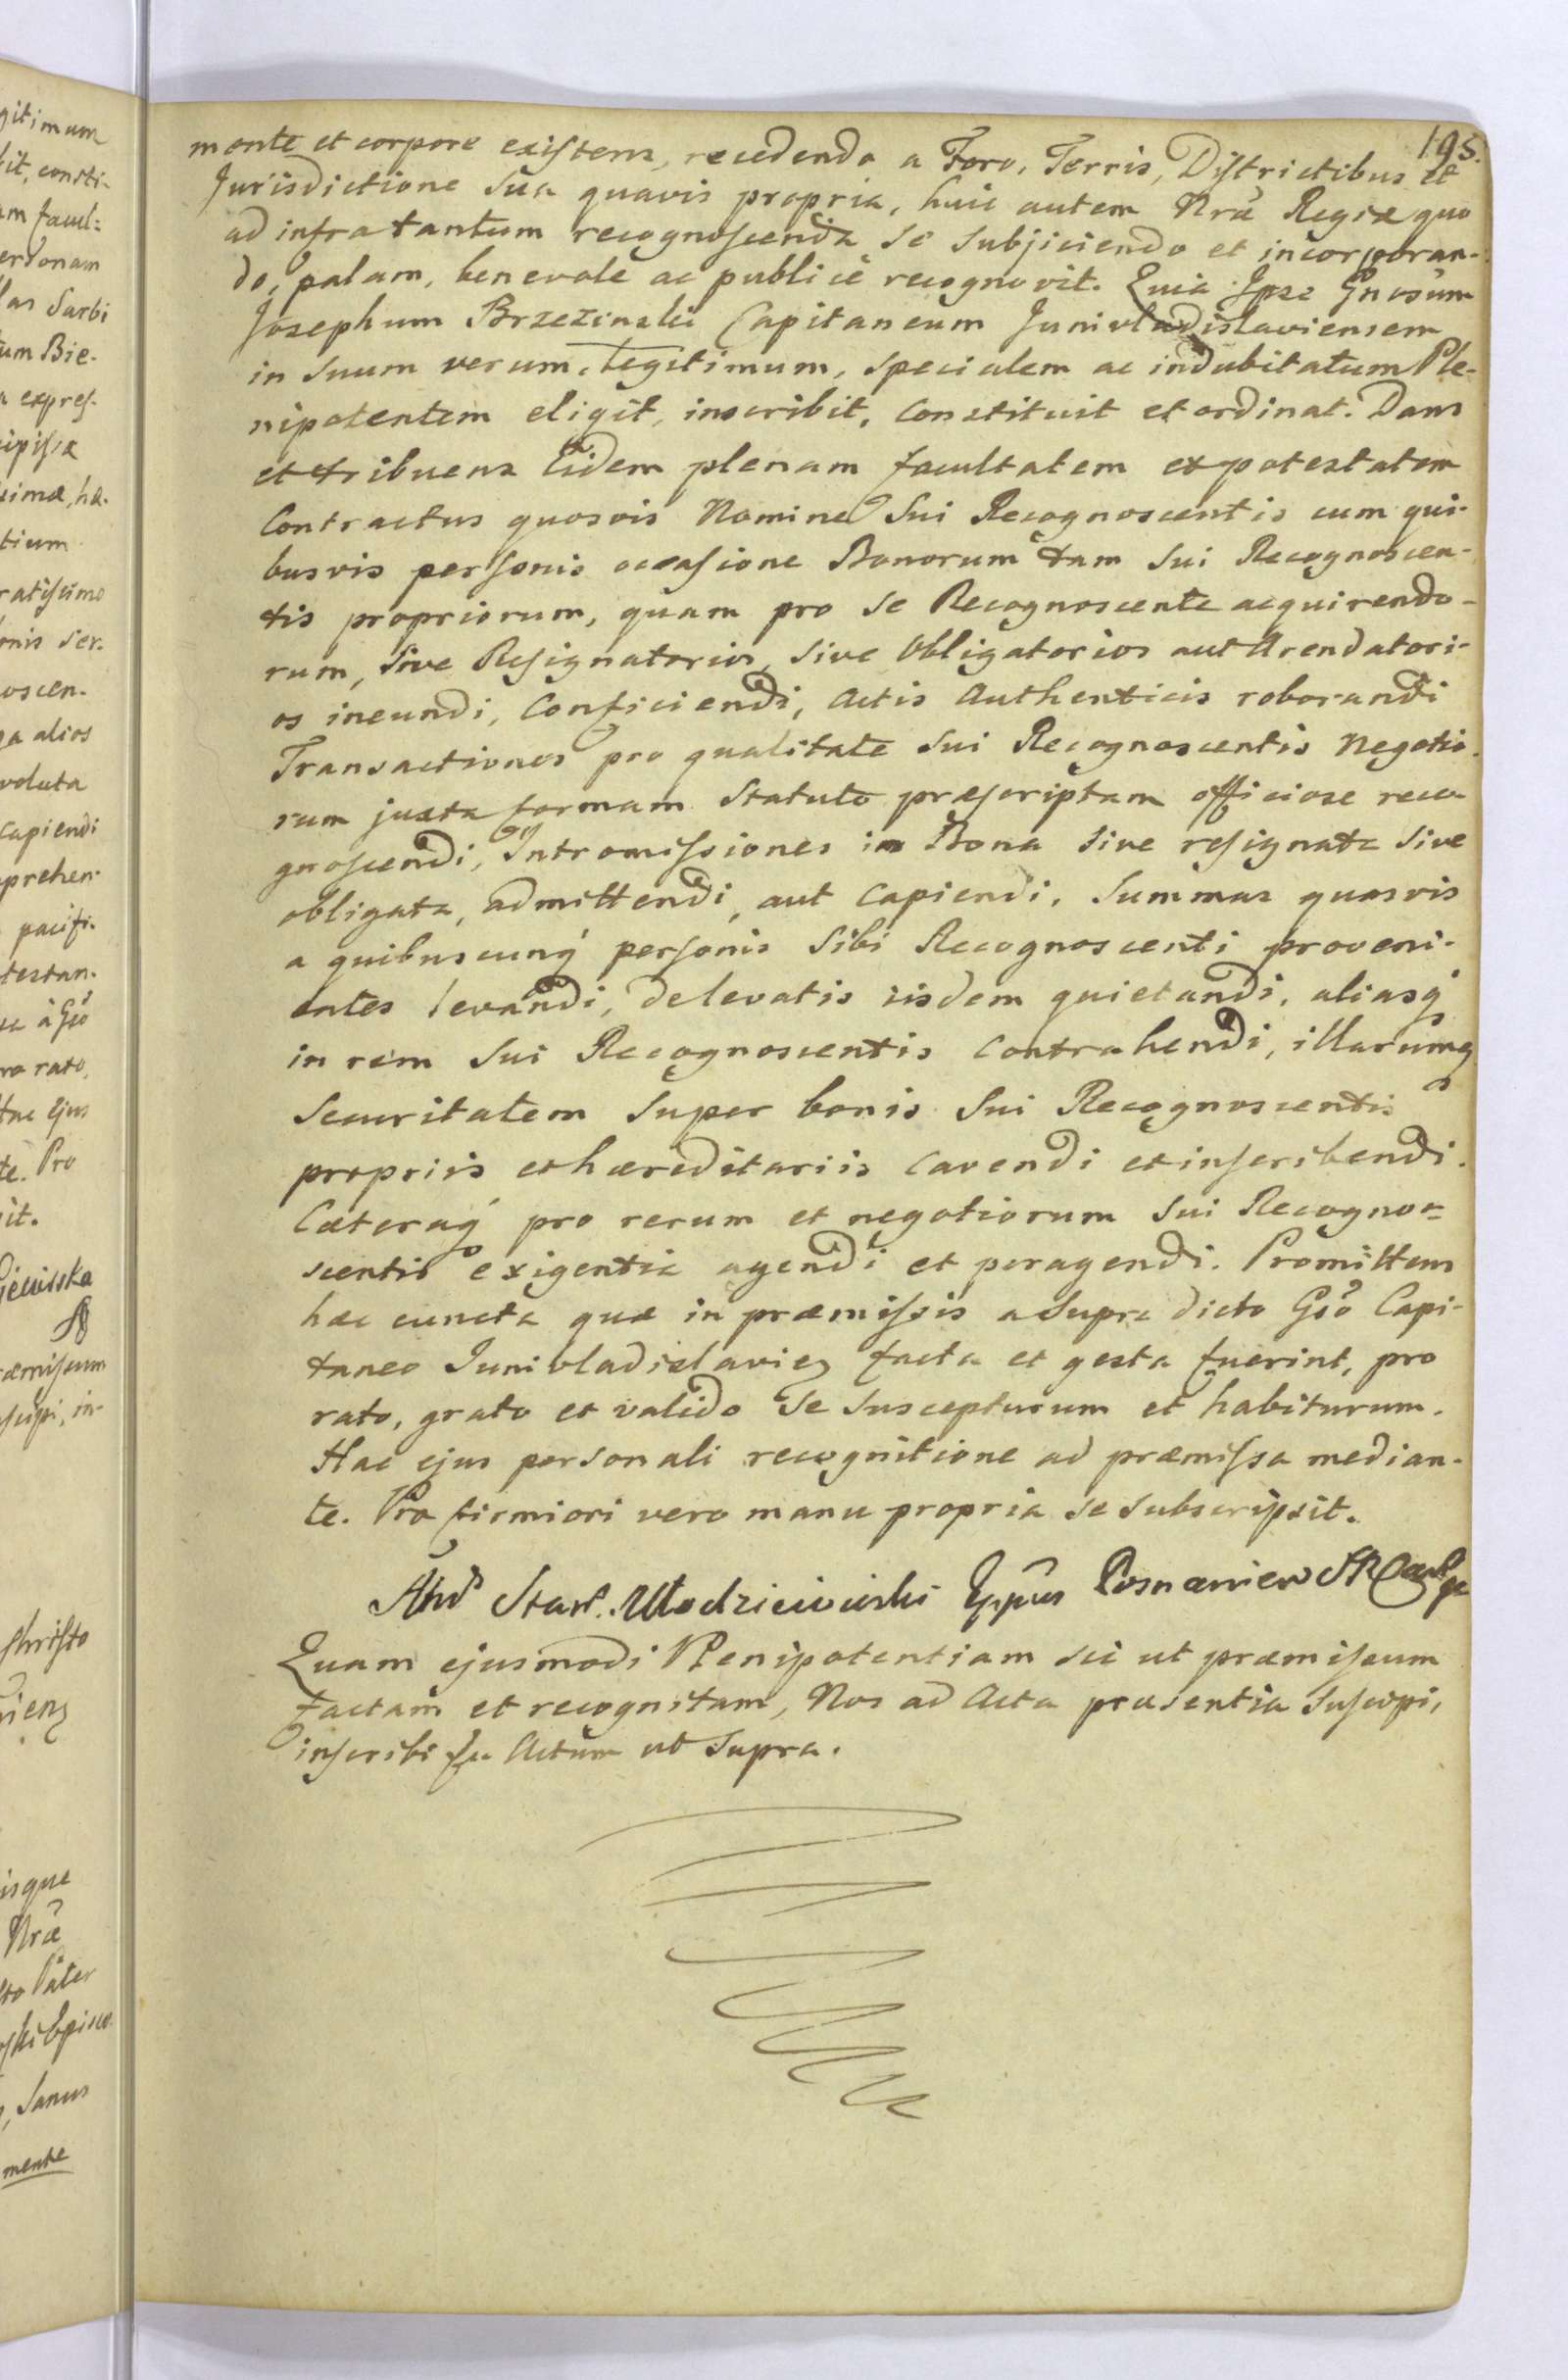 195.
mente et corpore existens, recedendo a Foro, Terris, Districtibus et
Jurisdictione Sua quavis propria, huic autem Nrae Regiæ quo
ad infra tantum recognoscenda Se Subjiciendo et incorporan-
do, palam, benevole ac publicè recognovit. Quia Ipse Gnosum
Josephum Brzezinski Capitaneum Junivladislaviensem
in Suum verum, legitimum, specialem ac indubitatum Ple-
nipotentem eligit, inscribit, Constituit et ordinat. Dans
et tribuens Eidem plenam facultatem et potestatem
Contractus quosvis Nomine Sui Recognoscentis cum qui-
busvis personis occasione Bonorum tam Sui Recognoscen-
tis propriorum, quam pro Se Recognoscente acquirendo-
rum, Sive Resignatorios, Sive Obligatorios aut Arendatori-
os ineundi, Conficiendi, Actis Authenticis roborandi
Transactiones pro qualitate Sui Recognoscentis Negotio-
rum juxta formam Statuto præscriptam officiose reco-
gnoscendi, Intromissiones in Bona Sive resignata Sive
obligata, admittendi, aut Capiendi, Summas quasvis
a quibuscunq personis Sibi Recognoscenti proveni-
entes levandi, de levatis iisdem quietandi, aliasq
in rem Sui Recognoscentis Contrahendi, illarumq
Securitatem Super bonis Sui Recognoscentis
propriis et hæreditariis Cavendi et inscribendi.
Cæteraq pro rerum et negotiorum Sui Recogno-
scentis exigentia agendi et peragendi. Promittens
hæc cuncta quæ in præmissis a Supra dicto Gso Capi-
taneo Junivladislavien facta et gesta fuerint, pro
rato, grato et valido Se Suscepturum et habiturum.
Hac ejus personali recognitione ad præmissa median-
te. Pro firmiori vero manu propria Se Subscripsit.
And Stan. Młodzieiowski Eppus Posnanien
Quam ejusmodi Plenipotentiam sic ut præmissum
factam et recognitam, Nos ad Acta præsentia Suscipi,
inscribi Actum ut Supra.